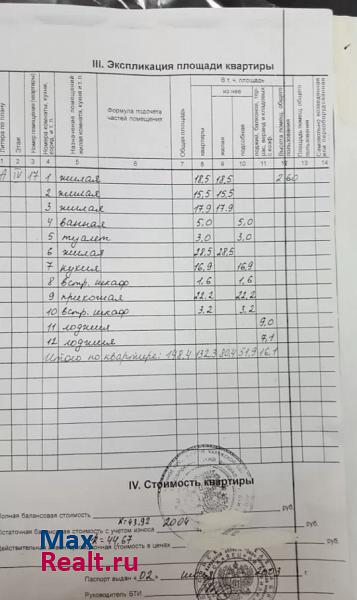 III. Экспликация площади квартиры
Литера по плану
Этаж
Номер помещения (квартиры)
Номера комнаты, кухни, корид. и т. п.
Назначение помещений жилая комната, кухня и т. п.
Формула подсчета частей помещения
Общая площадь
В т. ч. площадь
из нее
квартиры
жилая
подсобная
лоджий, балконов, террас, веранд и кладовых с коэф.
Высота помещ. общего пользования
Площадь помещ. общего пользования
Самовольно возведенная или переоборудованная
1 2 3 4 5 6 7 8 9 10 11 12 13 14
А IV 17 1 жилая 18,5 18,5 2.60
2 жилая 15,5 15,5
3 жилая 17,9 17,9
4 ванная 5,0 5,0
5 туалет 3,0 3,0
6 жилая 28,5 28,5
7 кухня 16,9 16,9
8 встр. шкаф 1,6 1,6
9 прихожая 22,2 22,2
10 встр. шкаф 3,2 3,2
11 лоджия 9,0
12 лоджия 7,1
Итого по квартире: 148,4 132,3 80,4 51,9 16,1
IV. Стоимость квартиры
Полная балансовая стоимость руб.
К=43.92 2004
Остаточная балансовая стоимость с учетом износа руб.
К=44.67
Действительная инвентаризационная стоимость в ценах руб.
Паспорт выдан «02» 2003
Руководитель БТИ
Max
Realt.ru